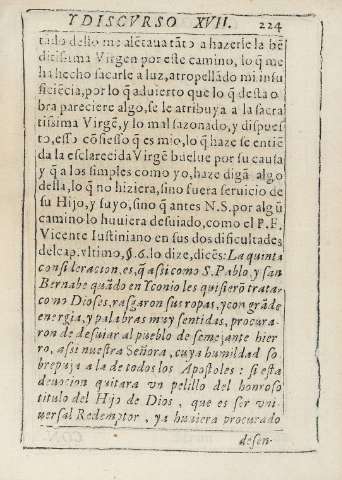 Y DISCVRSO XVII. 224
tado desto me alẽtava tãto a hazerle la bẽ
ditissima Virgen por este camino, lo q̃ me
ha hecho sacarle a luz, atropellãdo mi insu
ficiẽcia, por lo q̃ advierto que lo q̃ desta o
bra pareciere algo, se le atribuya a la sacra
tissima Virgẽ, y lo mal sazonado, y dispues
to, esso cõfiesso q̃ es mio, lo q̃ haze se entiẽ
da la esclarecida Virgẽ buelue por su causa
y q̃ a los simples como yo, haze digã algo
della, lo q̃ no hiziera, sino fuera seruicio de
su Hijo, y suyo, sino q̃ antes N.S. por algũ
camino lo huuiera desuiado, como el P.F.
Vicente Iustiniano en sus dos dificultades
del cap. vltimo, §.6. lo dize, dicẽs: La quinta
consideracion es, q̃ assi como S. Pablo, y san
Bernabe quãdo en Yconio les quisierõ tratar
como Dioses, rasgaron sus ropas, y con grãde
energia, y palabras muy sentidas, procura-
ron de desuiar al pueblo de semejante hier
ro, assi nuestra Señora, cuya humildad so
brepuja a la de todos los Apostoles: si esta
deuocion quitara vn pelillo del honroso
titulo del Hijo de Dios, que es ser vni
uersal Redemptor, ya huuiera procurado
desen-